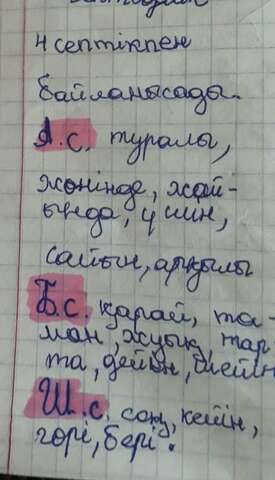 4 септікпен
байланысады.
А.с. туралы,
жөнінде, жай-
ында, үшін,
сайын, арқылы
Б.с. қарай, та-
ман, жуық, тар
та, дейін, шейін
Ш.с. соң, кейін,
гөрі, бері.